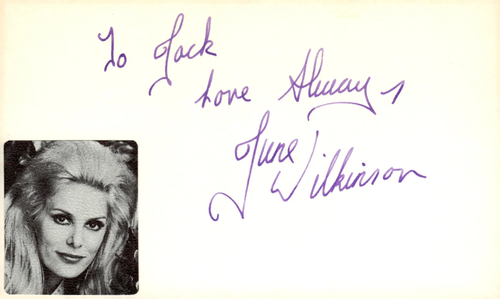 To Jack
Love Always
June
Wilkinson